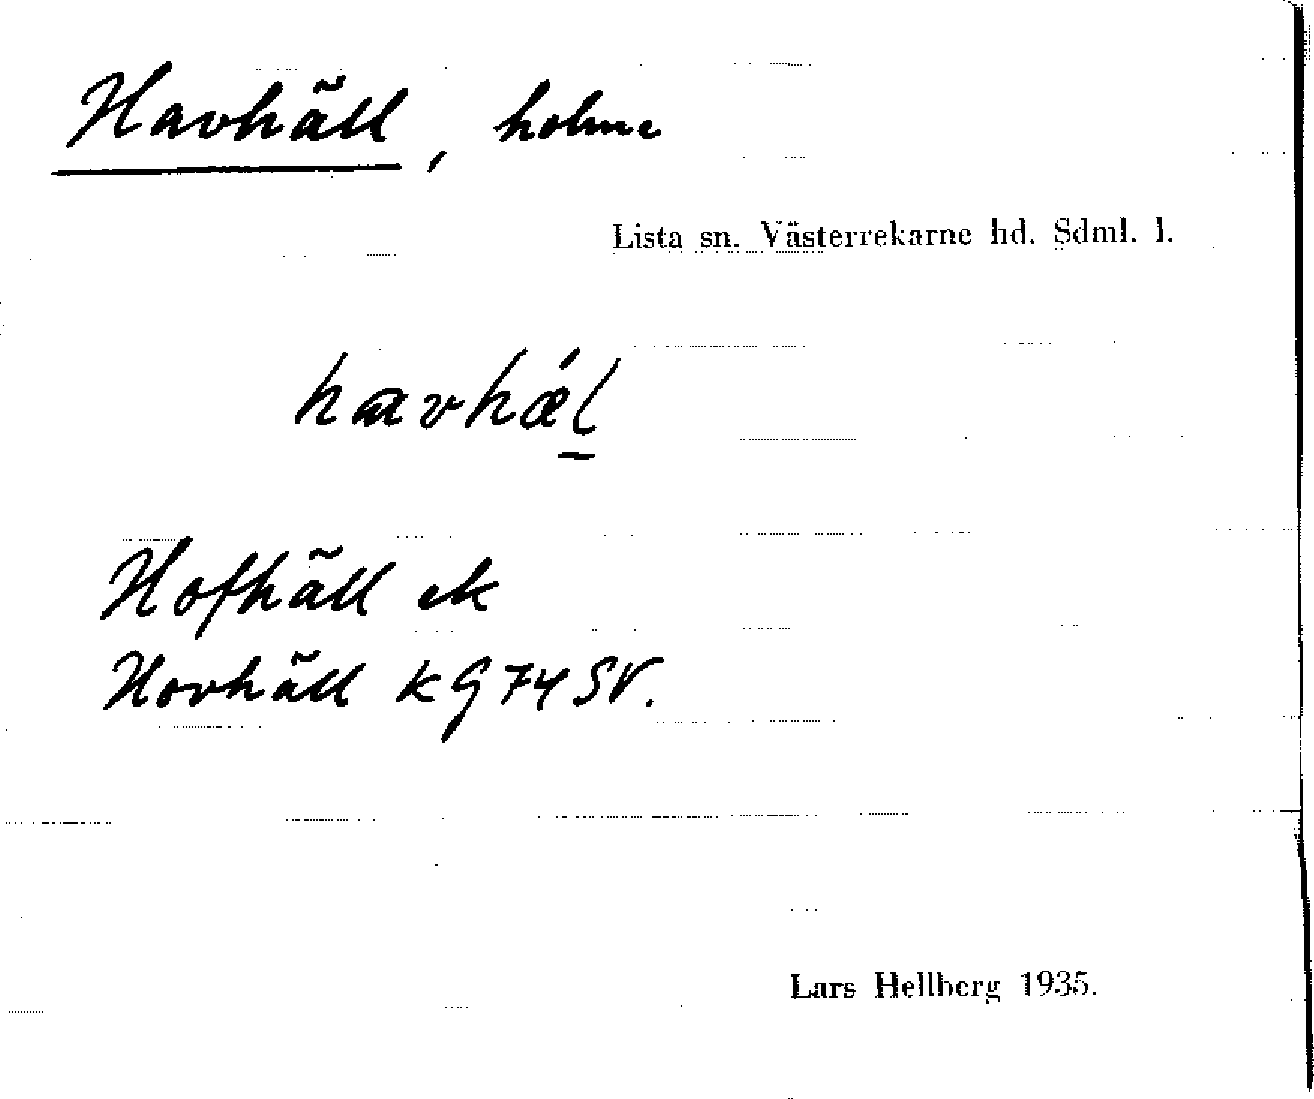 Havhäll, holme
Lista sn. Västerrekarne hd. Sdml. l.
Hofhäll ek
Hovhäll KG 74 SV.
Lars Hellberg 1935.